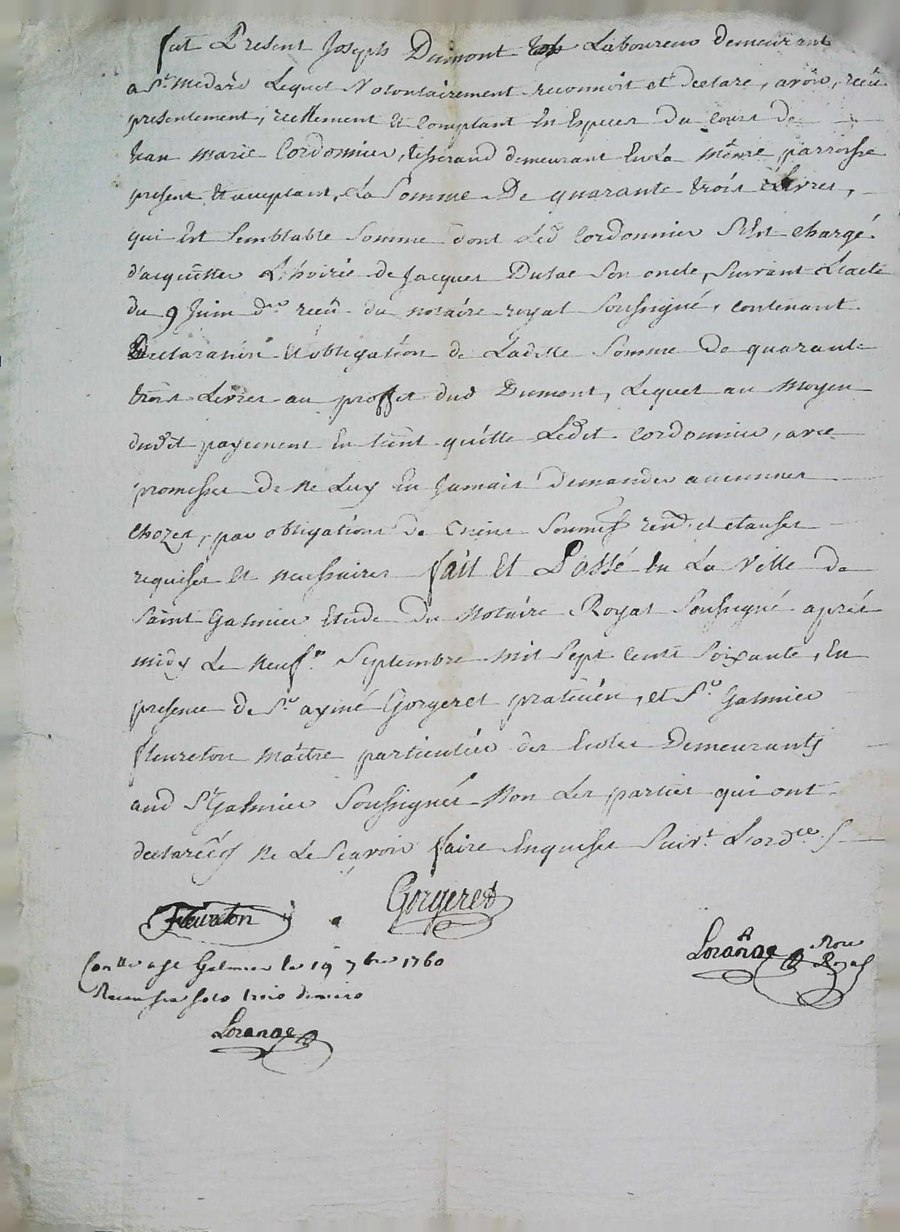 fut Present Joseph Dumont Laboureur demeurant
a St. Medard Lequel Volontairement reconnoit et declare, avoir, receu
presentement, reellement Et Comptant En Especes Du Cours de
Jean Marie Cordonnier, tisserand demeurant En La même parroisse
present Et acceptant, La Somme De quarante trois Livres,
qui Est Semblable Somme dont Led. Cordonnier S'Est chargé
d'acquitter L'hoirie de Jacques Dulac Son oncle, suivant L'acte
du 9 Juin der. receu du notaire royal Soussigné, contenant
Declaration Et obligation de Ladite Somme De quarante
trois Livres au proffit dud Dumont, Lequel au Moyen
dudit payement En tient quitte Ledit Cordonnier, avec
promesses De Ne Luy En Jamais demander aucunnes
Chozes, par obligations de biens Soumiss rend. et clauses
requises Et necessaires fait Et Passé En La Ville de
Saint Galmier Etude du Notaire Royal Soussigné après
midy Le Neuf Septembre Mil Sept Cents Soixante, En
presence de Sr. aymé Gorgeret praticien, et Sr. Galmier
fleureton Maître particulier des Ecoles Demeurants
aud St. Galmier Soussignés Non Les parties qui ont
declarées Ne Le Sçavoir faire Enquises Suivt. L'ordce.
Fleureton
Gorgeret
Lorange Nore Royal
Conllé a St Galmier le 19 7bre 1760
Receu six sols trois deniers
Lorange